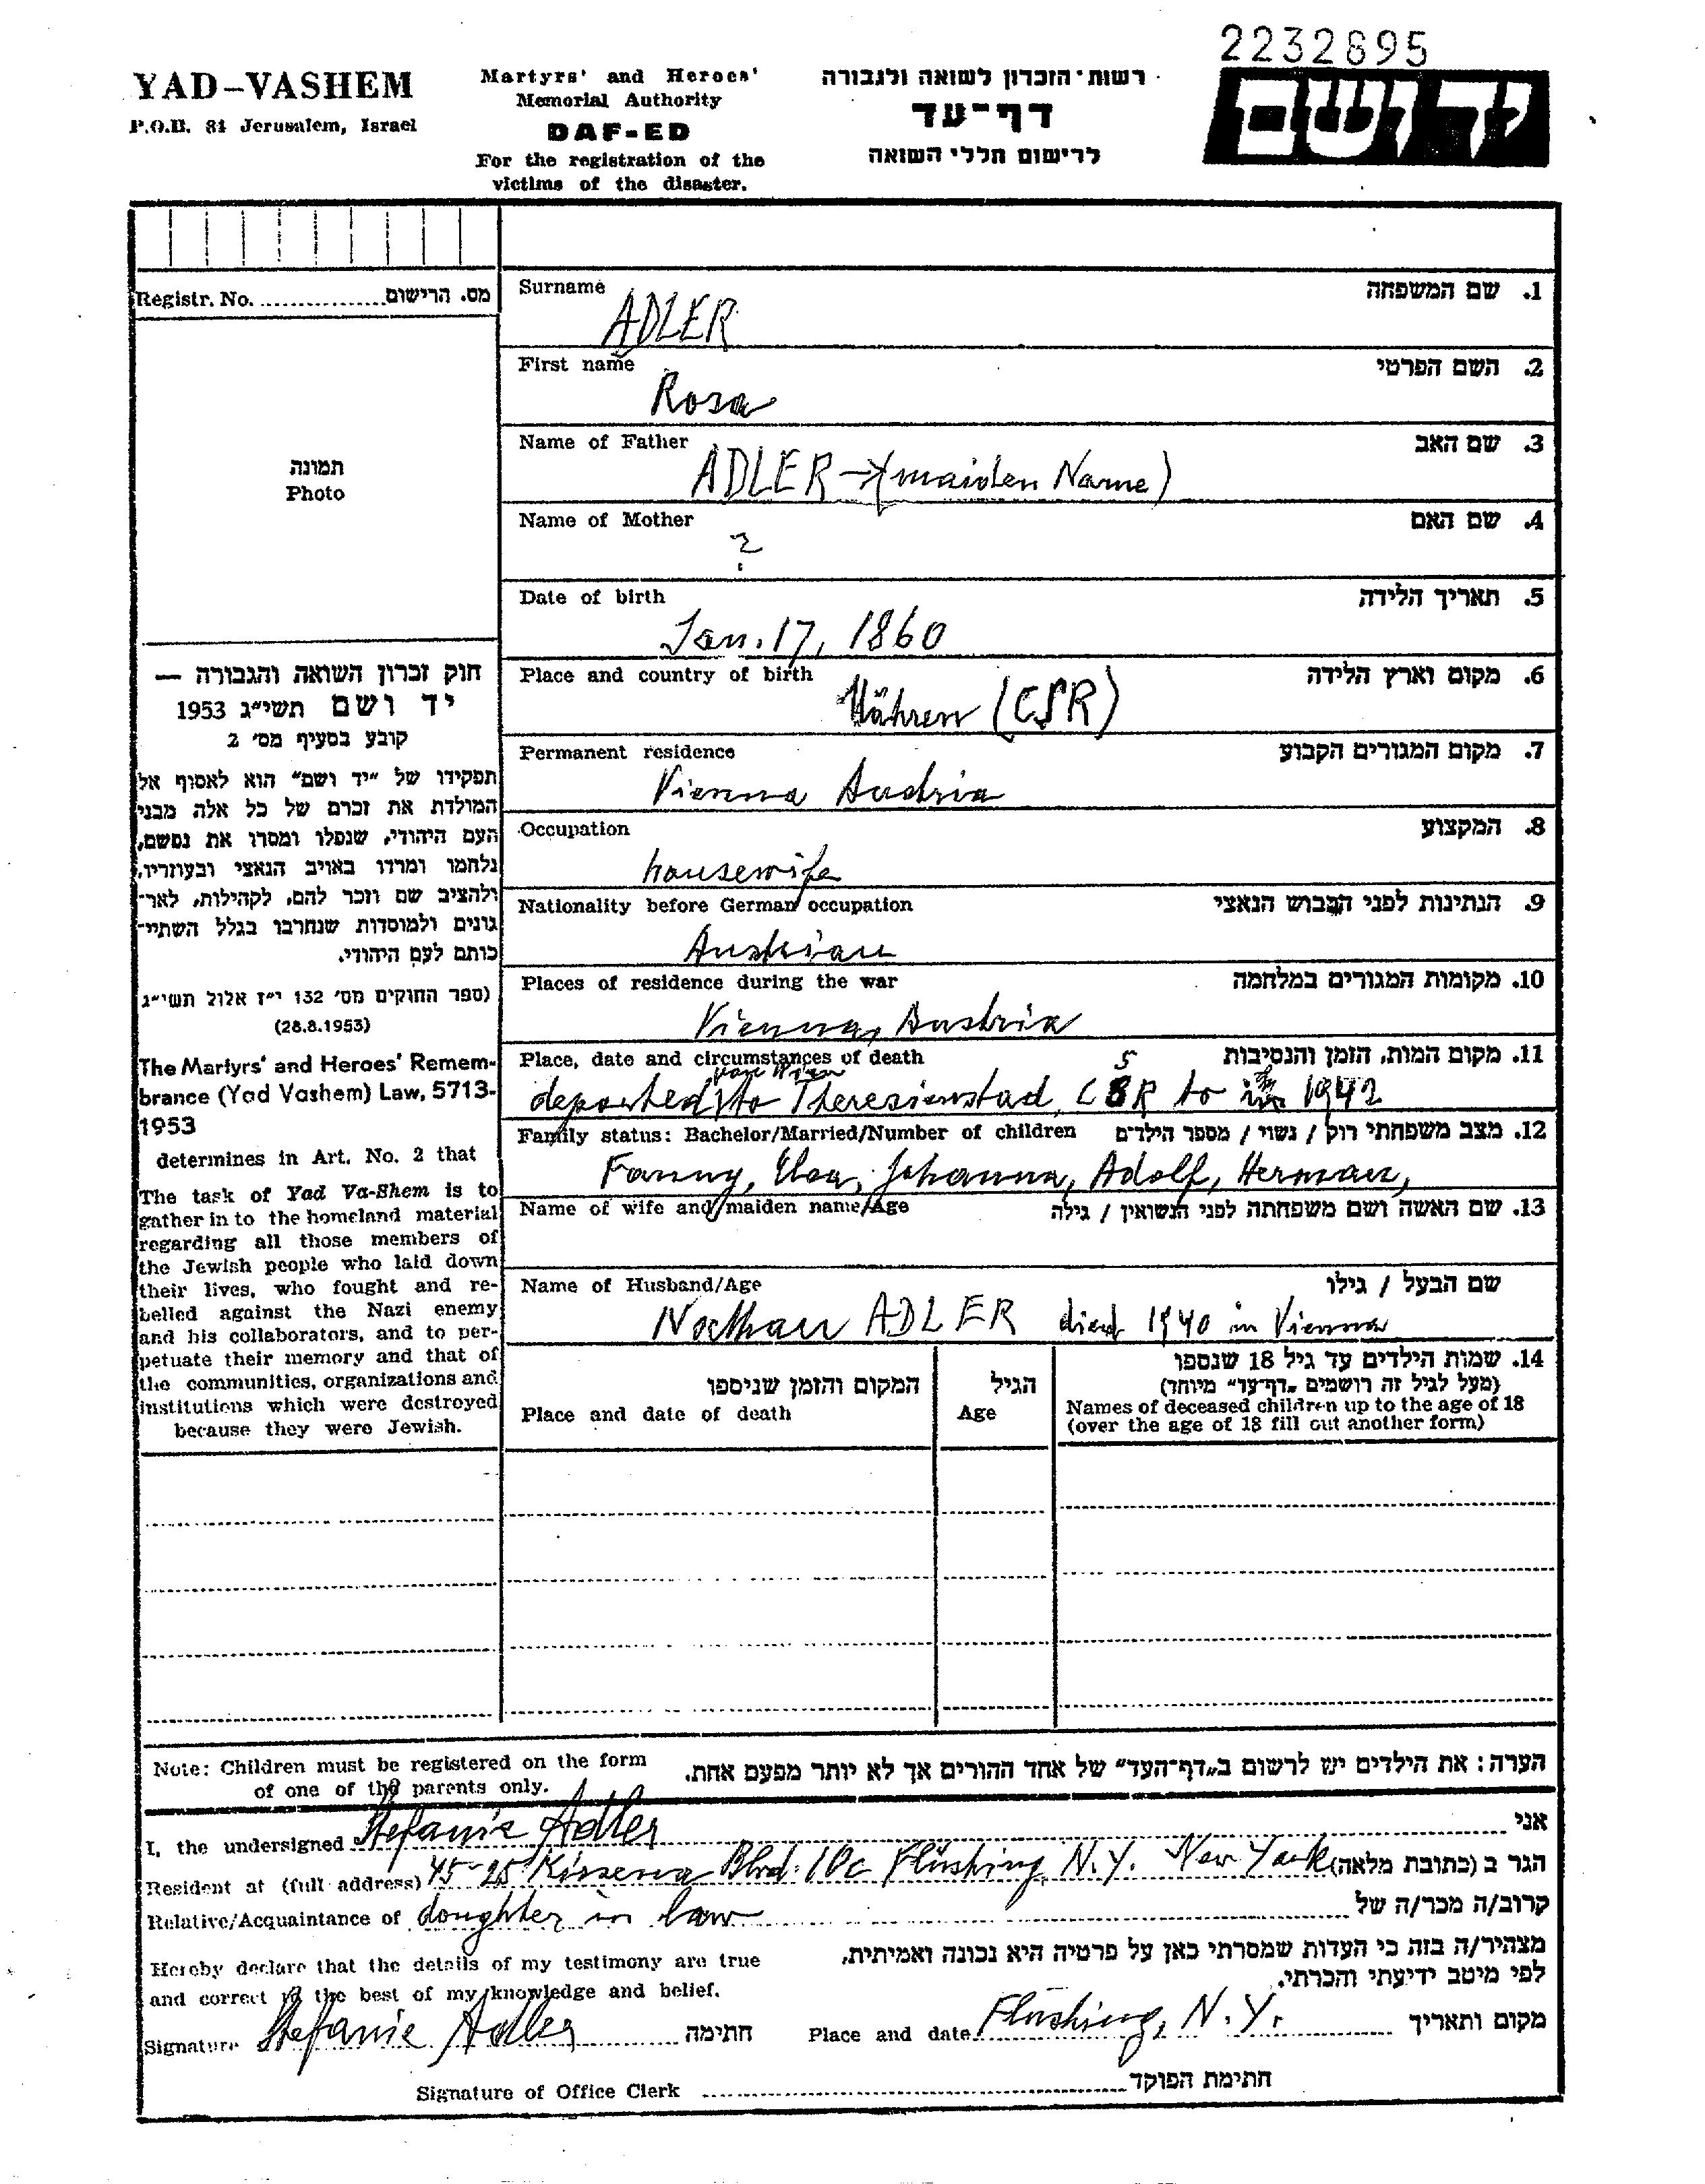 2232895
YAD-VASHEM
P.O.B. 84 Jerusalem, Israel
Martyrs' and Heroes'
Memorial Authority
DAF-ED
For the registration of the
victims of the disaster.
רשות-הזכרון לשואה ולגבורה
דף-עד
לרישום חללי השואה
יד ושם
Registr. No. ................ מס. הרישום
תמונה
Photo
חוק זכרון השואה והגבורה —
יד ושם תשי״ג 1953
קובע בסעיף מס׳ 2
תפקידו של ״יד ושם״ הוא לאסוף אל
המולדת את זכרם של כל אלה מבני
העם היהודי, שנפלו ומסרו את נפשם,
נלחמו ומרדו באויב הנאצי ובעוזריו,
ולהציב שם וזכר להם, לקהילות, לאר-
גונים ולמוסדות שנחרבו בגלל השתיי-
כותם לעם היהודי.
(ספר החוקים מס׳ 132 י״ז אלול תשי״ג
(28.8.1953)
The Martyrs' and Heroes' Remem-
brance (Yad Vashem) Law, 5713-
1953
determines in Art. No. 2 that
The task of Yad Va-Shem is to
gather in to the homeland material
regarding all those members of
the Jewish people who laid down
their lives, who fought and re-
belled against the Nazi enemy
and his collaborators, and to per-
petuate their memory and that of
the communities, organizations and
institutions which were destroyed
because they were Jewish.
Surname 1. שם המשפחה
ADLER
First name 2. השם הפרטי
Rosa
Name of Father 3. שם האב
ADLER → (maiden Name)
Name of Mother 4. שם האם
?
Date of birth 5. תאריך הלידה
Jan. 17, 1860
Place and country of birth 6. מקום וארץ הלידה
Mähren (CSR)
Permanent residence 7. מקום המגורים הקבוע
Vienna Austria
Occupation 8. המקצוע
housewife
Nationality before German occupation 9. הנתינות לפני הכבוש הנאצי
Austrian
Places of residence during the war 10. מקומות המגורים במלחמה
Vienna, Austria
Place, date and circumstances of death 11. מקום המות, הזמן והנסיבות
deported to Theresienstad, CSR 1942
Family status: Bachelor/Married/Number of children 12. מצב משפחתי רוק / נשוי / מספר הילדים
Fanny, Elsa, Johanna, Adolf, Herman,
Name of wife and maiden name/Age 13. שם האשה ושם משפחתה לפני הנשואין / גילה
Name of Husband/Age שם הבעל / גילו
Nathan ADLER died 1940 in Vienna
14. שמות הילדים עד גיל 18 שנספו
(מעל לגיל זה רושמים ״דף-עד״ מיוחד)
Names of deceased children up to the age of 18
(over the age of 18 fill out another form)
הגיל
Age
המקום והזמן שניספו
Place and date of death
Note: Children must be registered on the form
of one of the parents only.
הערה: את הילדים יש לרשום ב״דף-העד״ של אחד ההורים אך לא יותר מפעם אחת.
I, the undersigned Stefanie Adler אני
Resident at (full address) 45-25 Kissena Blvd. 10c Flushing N.Y. New York הגר ב (כתובת מלאה)
Relative/Acquaintance of doughter in law קרוב/ה מכר/ה של
Hereby declare that the details of my testimony are true
and correct to the best of my knowledge and belief.
מצהיר/ה בזה כי העדות שמסרתי כאן על פרטיה היא נכונה ואמיתית.
לפי מיטב ידיעתי והכרתי.
Signature Stefanie Adler חתימה Place and date Flushing, N.Y. מקום ותאריך
Signature of Office Clerk חתימת הפוקד